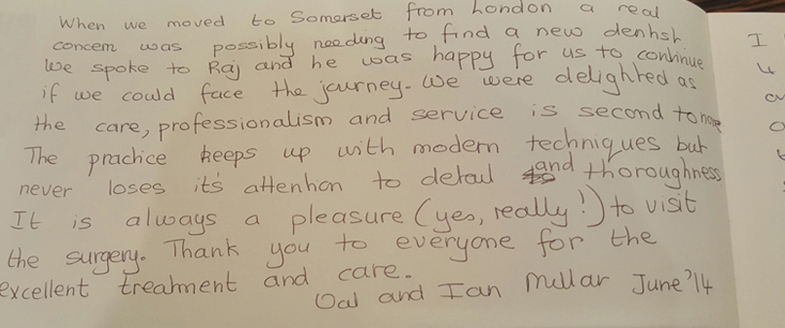 When we moved to Somerset from London a real
concern was possibly needing to find a new dentist
We spoke to Raj and he was happy for us to continue
if we could face the journey. We were delighted as
the care, professionalism and service is second to none
The practice keeps up with modern techniques but
never loses it's attention to detail and thoroughness
It is always a pleasure (yes, really!) to visit
the surgery. Thank you to everyone for the
excellent treatment and care.
and Ian Millar June '14